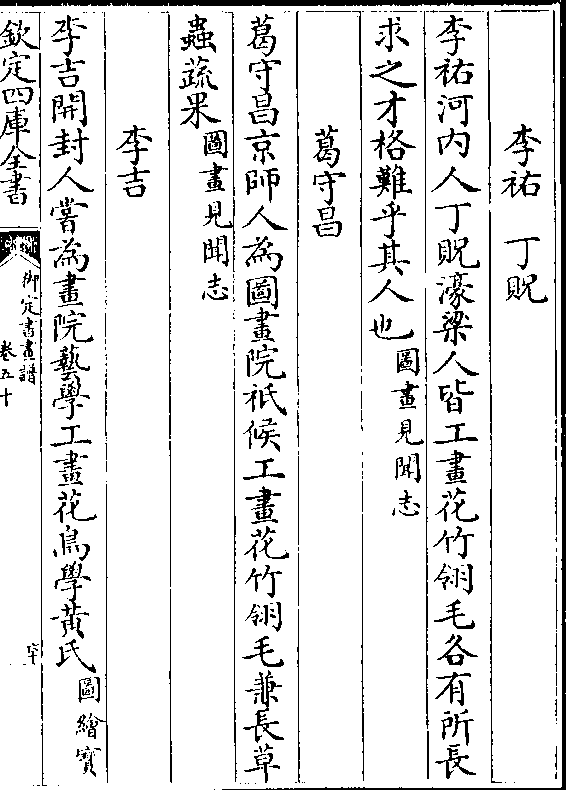 李祐　丁貺
李祐河内人丁貺濠梁人皆工畫花竹翎毛各有所長
求之才格難乎其人也圖畫見聞志
葛守昌
葛守昌京師人為圖畫院祇候工畫花竹翎毛兼長草
蟲蔬果圖畫見聞志
李吉
李吉開封人嘗為畫院藝學工畫花鳥學黄氏圖繪寳
欽定四庫全書
御定書畫譜
卷五十